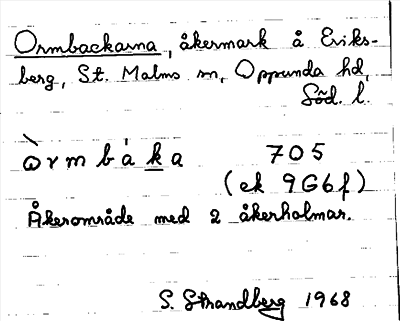 Ormbackarna, åkermark å Eriks-
berg, St. Malms sn, Oppunda hd,
Söd. l.
òrmbàka 705
(ek 9G6f)
Åkerområde med 2 åkerholmar.
S. Strandberg 1968